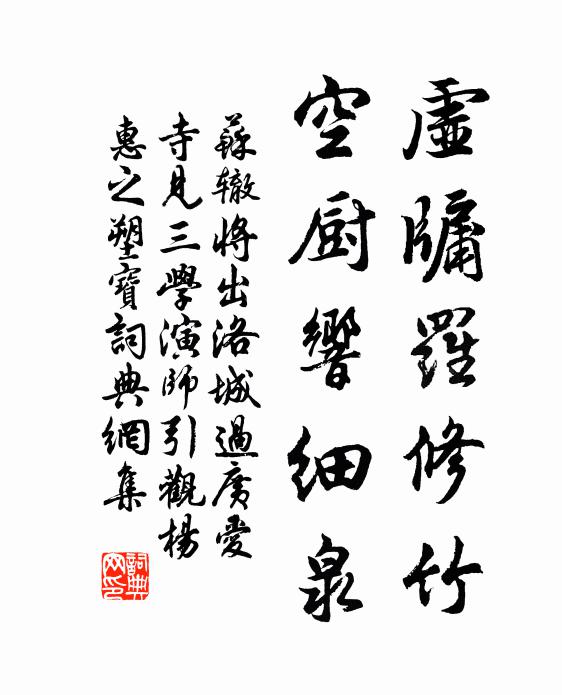 虛牖羅修竹
空厨響細泉
蘇辙將出洛城過廣愛
寺見三學演師引觀楊
惠之塑寶詞典網集
詞典
网印